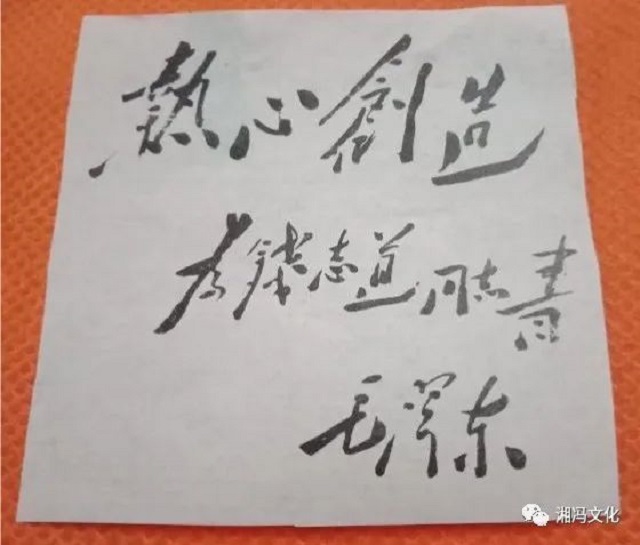 熱心創造
為錢志道同志書
毛澤東
湘冯文化